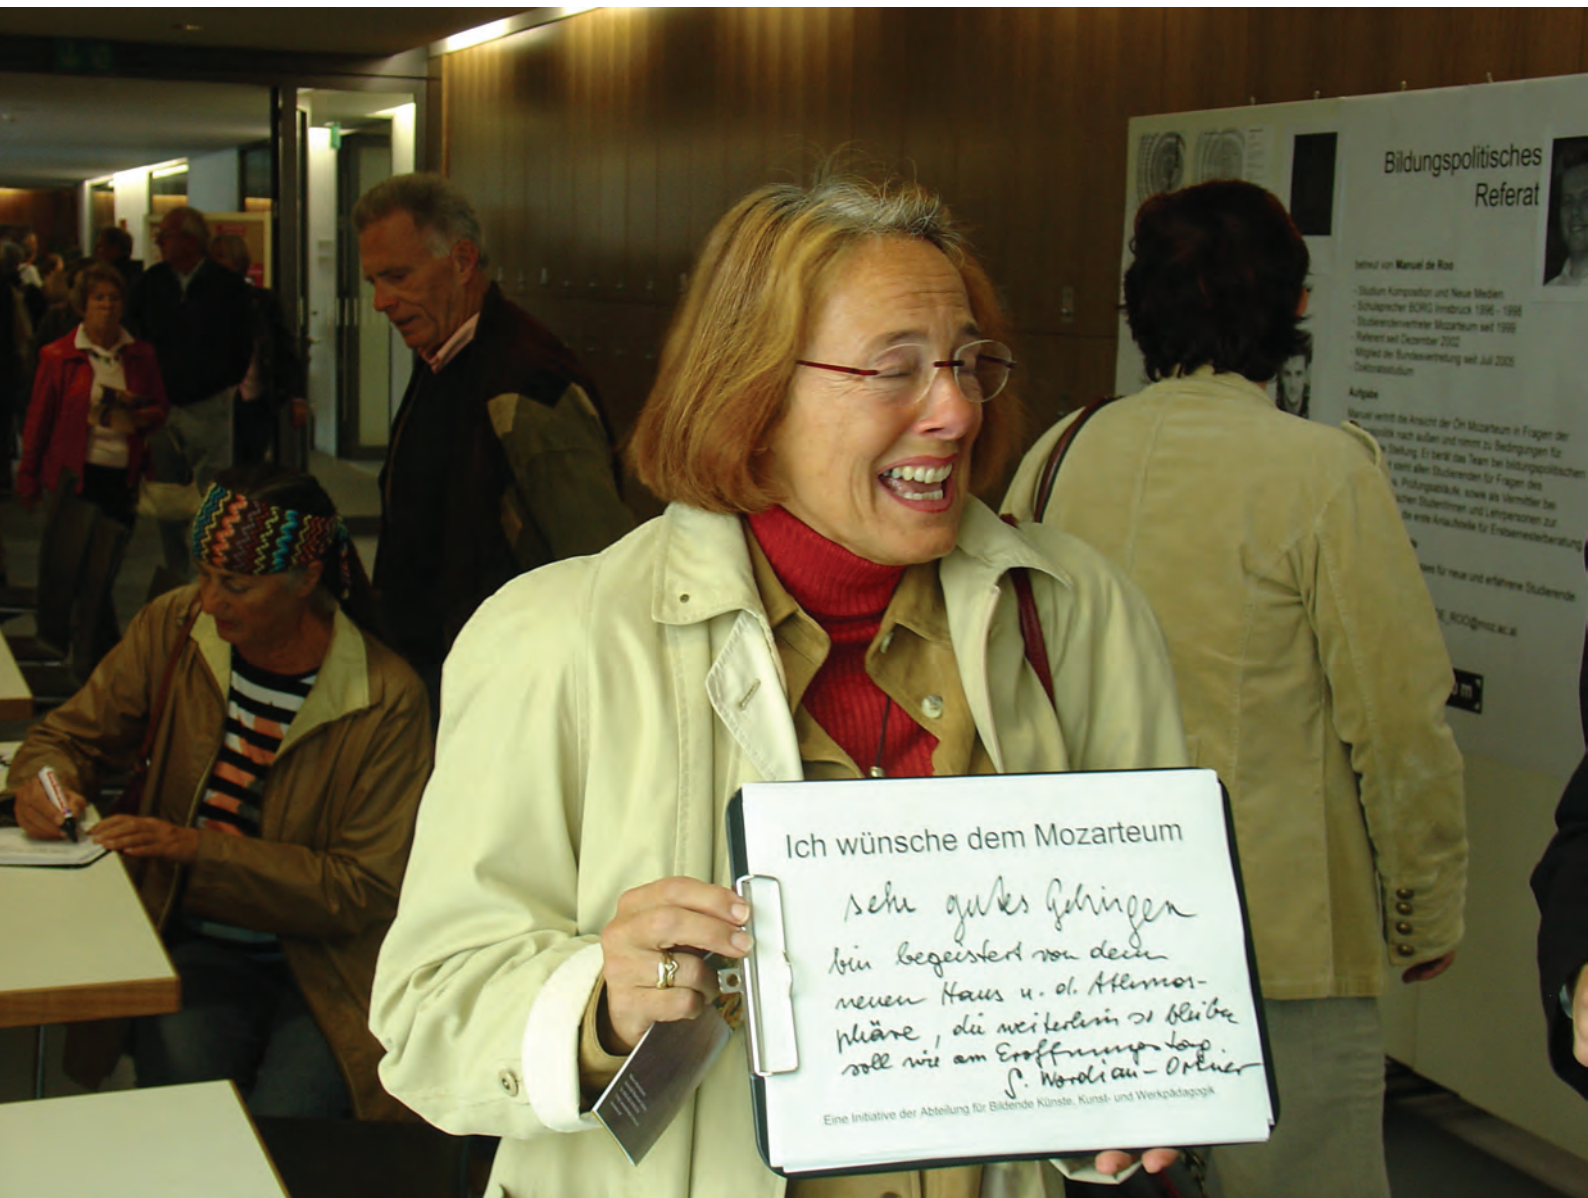 Bildungspolitisches
Referat
betreut von Manuel de Roo
- Studium Komposition und Neue Medien
- Schulsprecher BORG Innsbruck 1996 - 1998
- Studierendenvertreter Mozarteum seit 1999
- Referent seit Dezember 2002
- Mitglied der Bundesvertretung seit Juli 2005
- Doktoratsstudium
Aufgabe
Manuel vertritt die Ansicht der ÖH Mozarteum in Fragen der
nach außen und nimmt zu Bedingungen für
Stellung. Er berät das Team bei bildungspolitischen
steht allen Studierenden für Fragen des
Prüfungsabläufe, sowie als Vermittler bei
Studentinnen und Lehrpersonen zur
die erste Anlaufstelle für Erstsemesterberatung
für neue und erfahrene Studierende
ROO@moz.ac.at
Ich wünsche dem Mozarteum
sehr gutes Gelingen
bin begeistert von dem
neuen Haus u. d. Athmos-
phäre, die weiterhin so bleiben
soll wie am Eröffnungstag.
Eine Initiative der Abteilung für Bildende Künste, Kunst- und Werkpädagogik